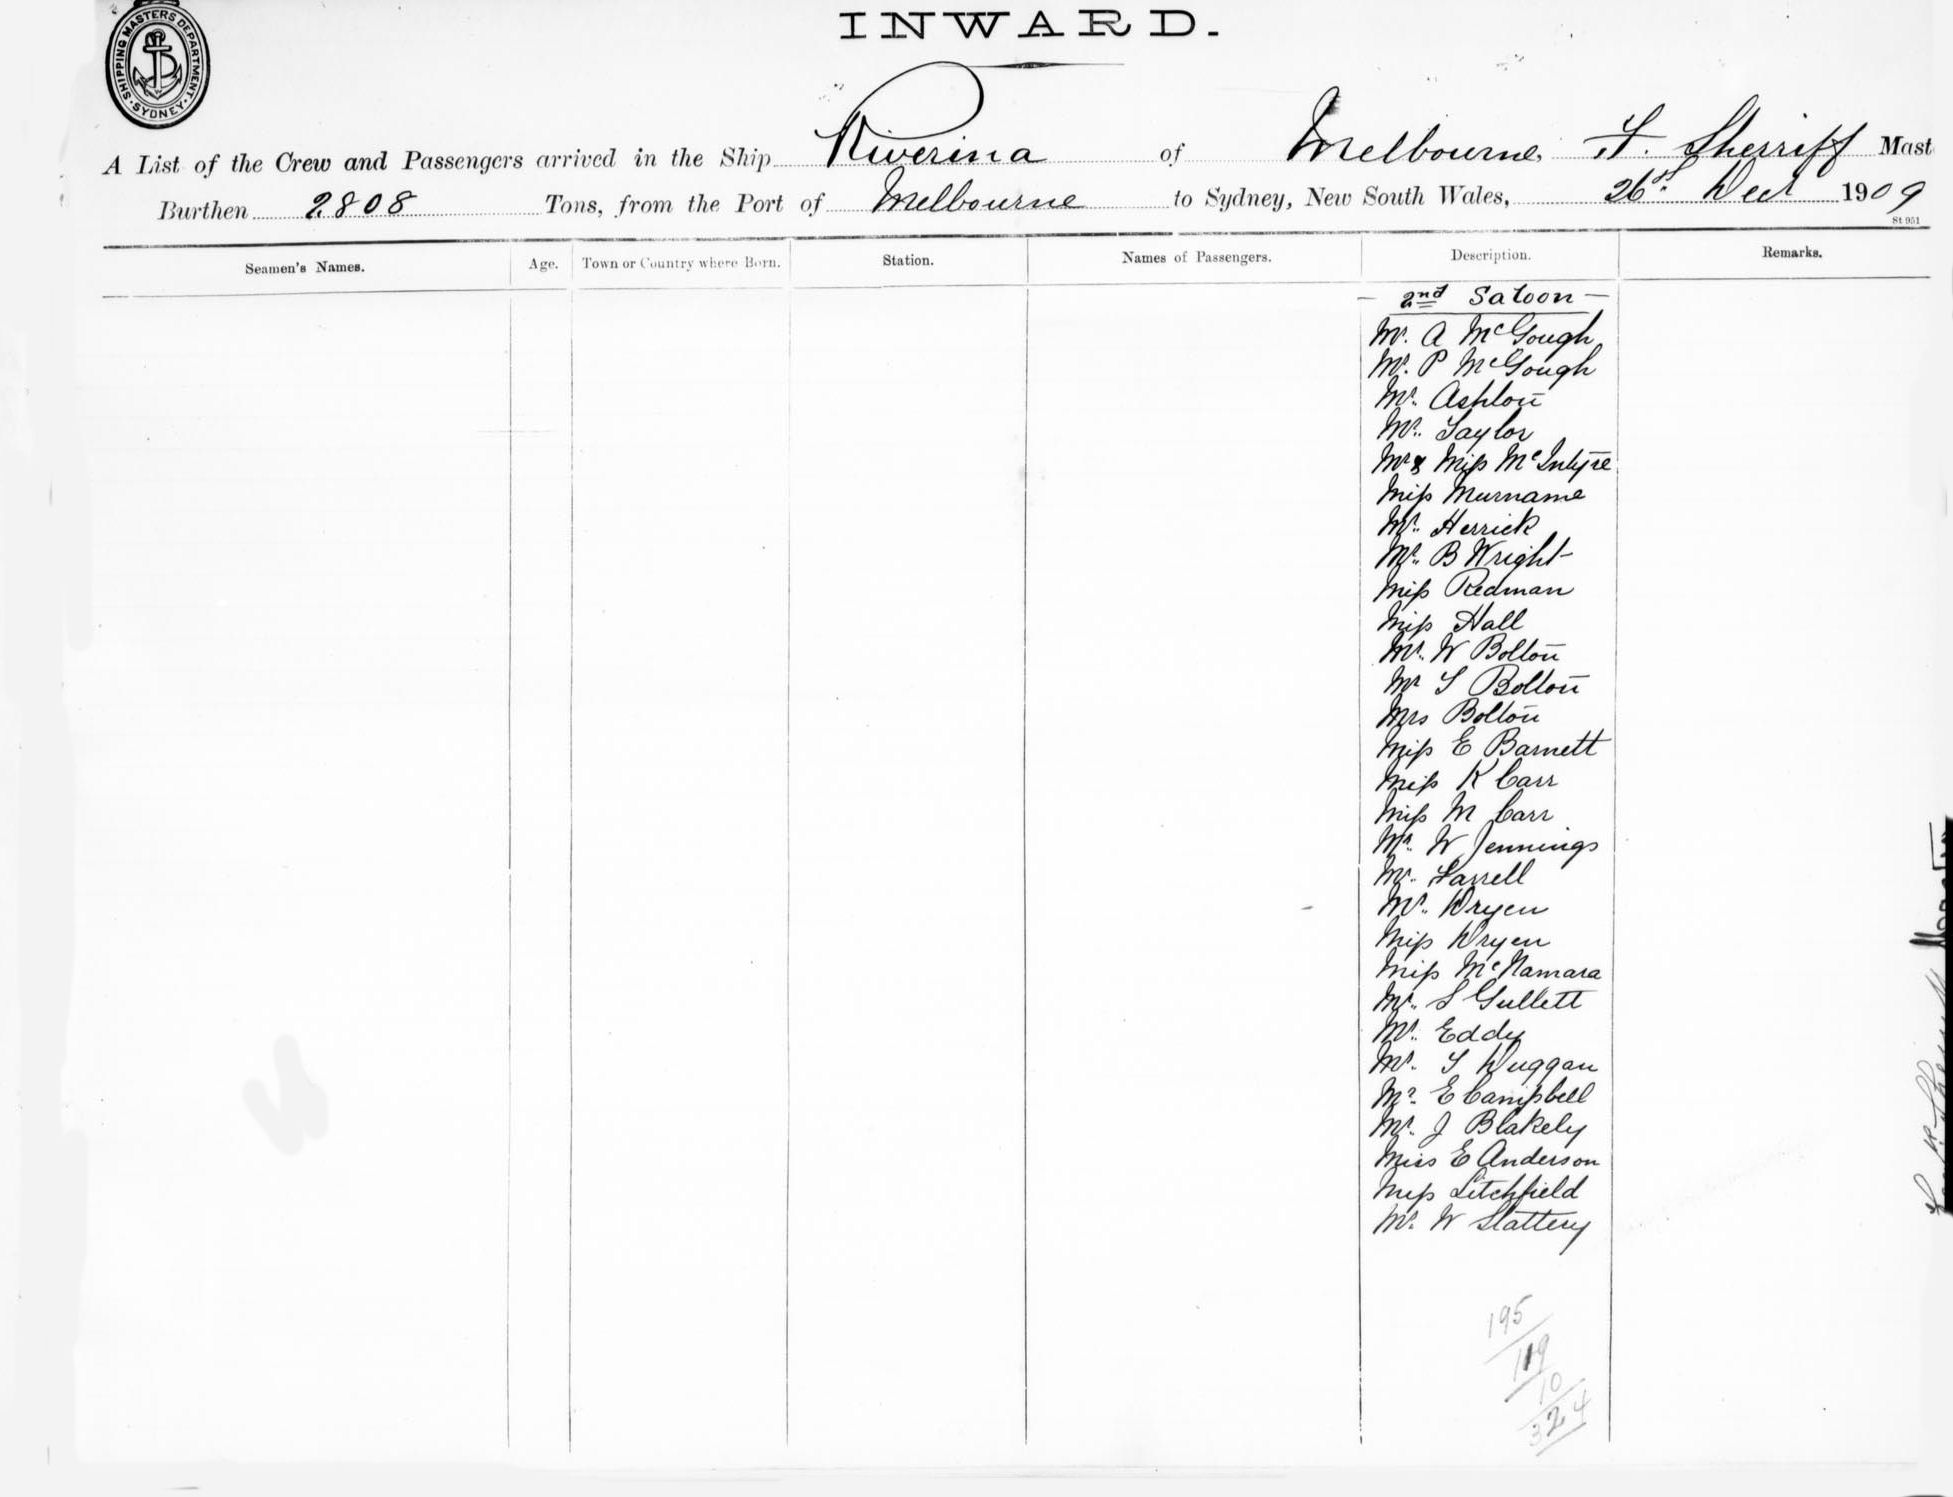 SHIPPING MASTERS DEPARTMENT. SYDNEY
INWARD.
A List of the Crew and Passengers arrived in the Ship Riverina of Melbourne, F. Sherriff Mast
Burthen 2808 Tons, from the Port of Melbourne to Sydney, New South Wales, 26st Dec 1909
St 951
Seamen's Names. Age. Town or Country where Born. Station. Names of Passengers. Description. Remarks.
- 2nd Saloon -
Mr. A McGough
Mr. P McGough
Mr. Ashton
Mr. Taylor
Mr & Miss McIntyre
Miss Murname
Mr. Herrick
Mr. B Wright
Miss Redman
Miss Hall
Mr. W Bolton
Mr T Bolton
Mrs Bolton
Miss E Barnett
Miss K Carr
Miss M Carr
Mr. W Jennings
Mr. Farrell
Mr. Dryen
Miss Dryen
Miss McNamara
Mr. S Gullett
Mr. Eddy
Mr. T Duggan
Mr. E Campbell
Mr. J Blakely
Miss E Anderson
Miss Litchfield
Mr. W Slattery
195
119
10
324